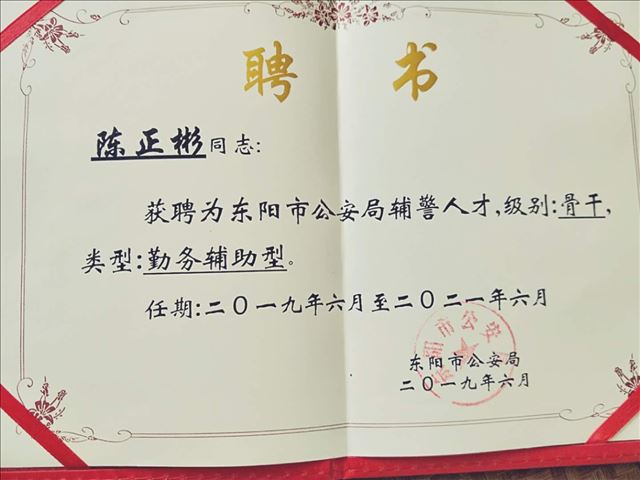 聘书
陈正彬同志:
获聘为东阳市公安局辅警人才,级别:骨干,
类型:勤务辅助型。
任期:二〇一九年六月至二〇二一年六月
东阳市公安局
二〇一九年六月
东阳市公安局